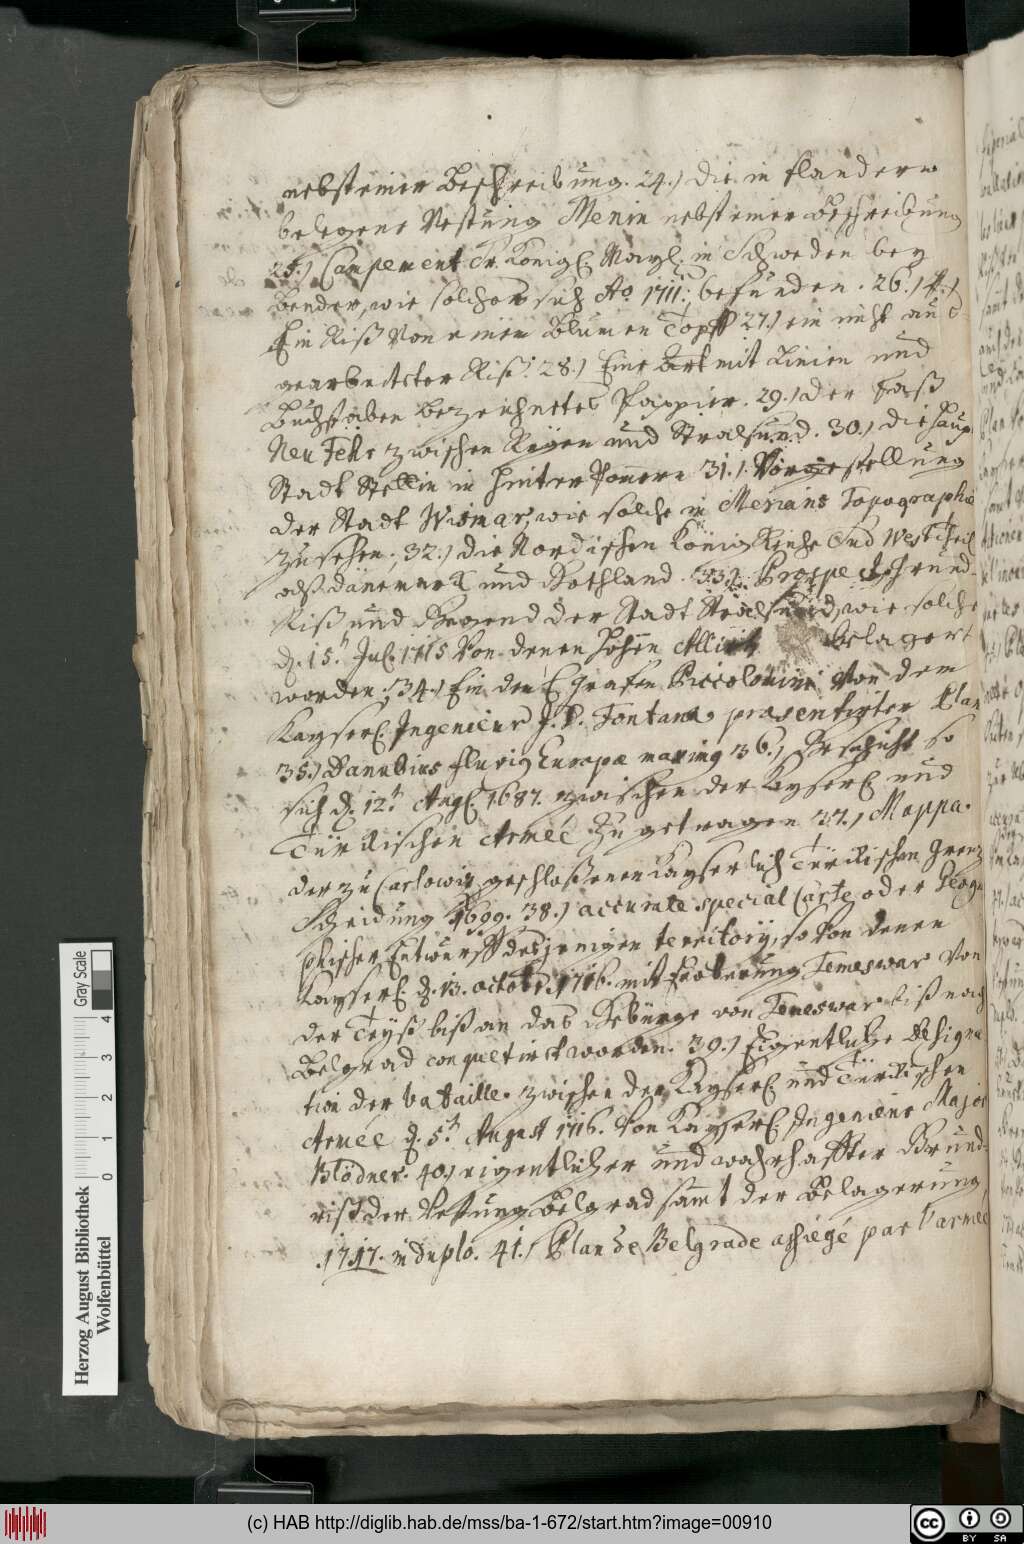 nebst einer Beschreibung. 24.) die in flandern
belegene Vestung Menin nebst einer Beschreibung
25.) Campement Sr. Königl. Mayl. in Schweden bey
Bender, wie solches sich Ao 1711. befunden. 26.)
Ein Riß von einem Blumen Topff 27.) ein nicht aus-
gearbeiteter Riß. 28.) Eine Art mit Linien und
Buchstaben bezeichnetes Pappier. 29.) der Paß
Neu Fehr zwischen Rügen und Stralsund. 30.) die Haupt
Stadt Stettin in Hinter Pomern 31.) Vorgestellung
der Stadt Wismar, wie solche in Merians Topographie
zu sehen; 32.) die Nordischen Königreiche Sud West theil
alß Dänemarck und Gothland. 33.) Prospect Grund-
Riß und Gegend der Stadt Stralsund, wie solche
d. 15.t Jul. 1715 von denen Hohen Alliirten belagert
worden; 34.) Ein dem E. Grafen Piccolomini von dem
Kayserl. Ingenieur J. D. Fontana præsentirter Plan
35.) Danubius fluvig Europæ maximg 36.) Geschicht so
sich d. 12.t Aug. 1687. zwischen der Kayserl. und
Türckischen Armée zu getragen 37.) Mappa
der zu Carlowiz geschloßenen Kayserlich Türckischen Grenz
Scheidung 1699. 38.) accurate special Carte oder Geogra
phischer Entwurff desjenigen territorÿ, so von denen
Kayserl. d. 13. octobr. 1716. mit Eroberung Temeswar von
der Teyß biß an das Gebürge von Temeswar biß nach
Belgrad conquetirt worden. 39.) Eigentliche Designa
tion der bataille zwischen der Kayserl. und Türckischen
Armée d. 5.t August 1716. von Kayserl. Ingenieur Major
Blödner. 40.) eigentlicher und wahrhaffter Grund-
riß der Vestung Belgrad samt der Belagerung
1717. in duplo. 41.) Plan de Belgrade assiégé par l'armée
Herzog August Bibliothek
Wolfenbüttel
Gray Scale
0 1 2 3 4
(c) HAB http://diglib.hab.de/mss/ba-1-672/start.htm?image=00910
cc BY SA